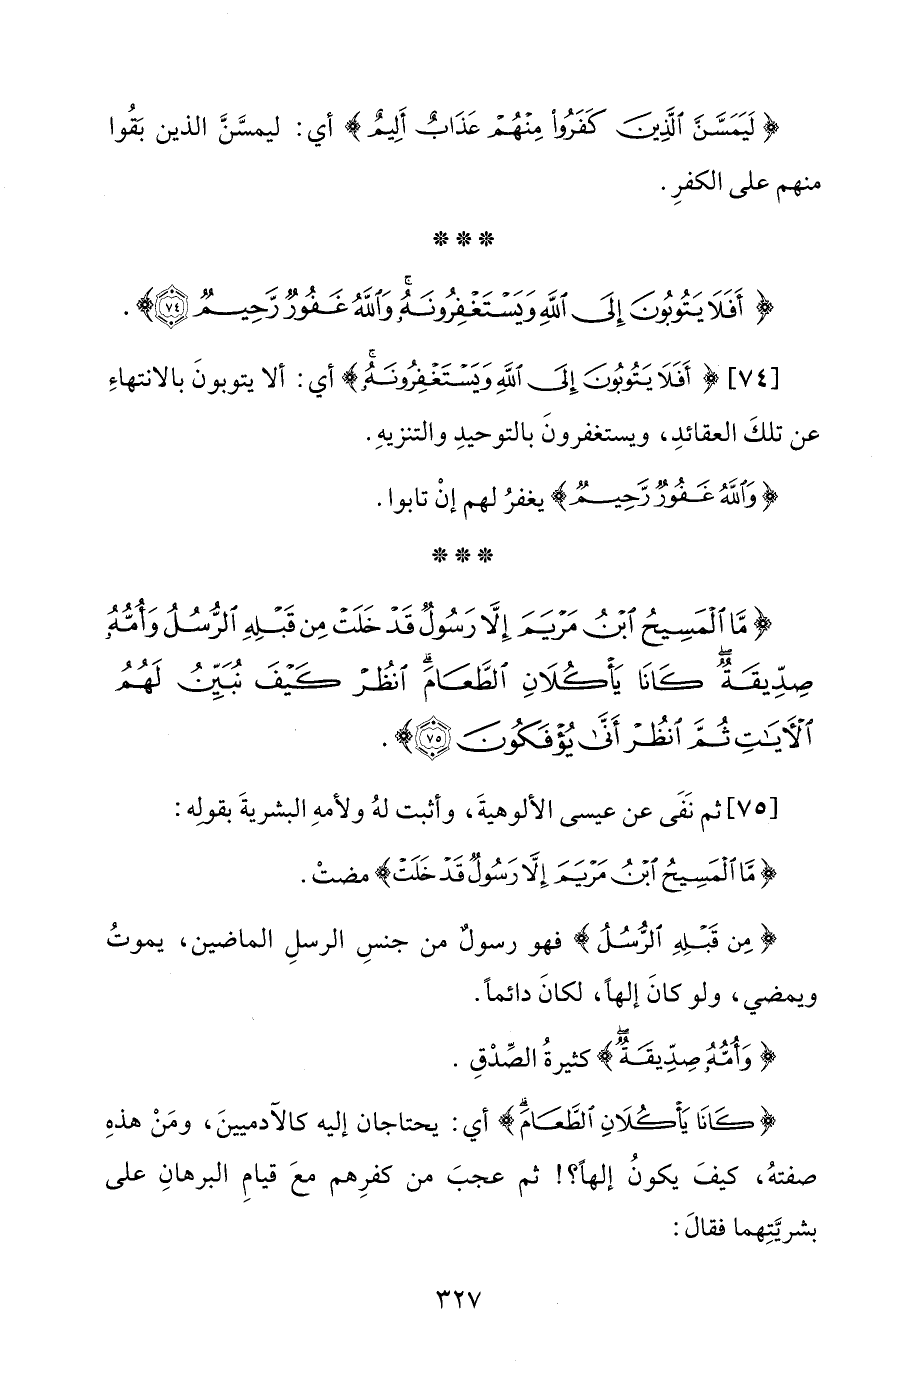 ﴿ لَيَمَسَّنَّ ٱلَّذِينَ كَفَرُواْ مِنْهُمْ عَذَابٌ أَلِيمٌ ﴾ أي: ليمسَّنَّ الذين بَقُوا
منهم على الكفرِ.
* * *
﴿ أَفَلَا يَتُوبُونَ إِلَى ٱللَّهِ وَيَسْتَغْفِرُونَهُۥۚ وَٱللَّهُ غَفُورٌ رَّحِيمٌ ۝٧٤﴾.
[٧٤] ﴿ أَفَلَا يَتُوبُونَ إِلَى ٱللَّهِ وَيَسْتَغْفِرُونَهُۥۚ﴾ أي: ألا يتوبونَ بالانتهاءِ
عن تلكَ العقائدِ، ويستغفرونَ بالتوحيدِ والتنزيهِ.
﴿ وَٱللَّهُ غَفُورٌ رَّحِيمٌ﴾ يغفرُ لهم إنْ تابوا.
* * *
﴿ مَّا ٱلْمَسِيحُ ٱبْنُ مَرْيَمَ إِلَّا رَسُولٌ قَدْ خَلَتْ مِن قَبْلِهِ ٱلرُّسُلُ وَأُمُّهُۥ
صِدِّيقَةٌۖ كَانَا يَأْكُلَانِ ٱلطَّعَامَۗ ٱنظُرْ كَيْفَ نُبَيِّنُ لَهُمُ
ٱلْأَيَٰتِ ثُمَّ ٱنظُرْ أَنَّىٰ يُؤْفَكُونَ ۝٧٥﴾.
[٧٥] ثم نَفَى عن عيسى الألوهيةَ، وأثبت لهُ ولأمهِ البشريةَ بقولِه:
﴿ مَّا ٱلْمَسِيحُ ٱبْنُ مَرْيَمَ إِلَّا رَسُولٌ قَدْ خَلَتْ﴾ مضتْ.
﴿ مِن قَبْلِهِ ٱلرُّسُلُ ﴾ فهو رسولٌ من جنسِ الرسلِ الماضين، يموتُ
ويمضي، ولو كانَ إلهاً، لكانَ دائماً.
﴿ وَأُمُّهُۥ صِدِّيقَةٌۖ﴾ كثيرةُ الصِّدْقِ.
﴿ كَانَا يَأْكُلَانِ ٱلطَّعَامَۗ﴾ أي: يحتاجان إليه كالآدميينَ، ومَنْ هذهِ
صفتهُ، كيفَ يكونُ إلهاً؟! ثم عجبَ من كفرِهم معَ قيامِ البرهانِ على
بشريَّتِهما فقالَ:
٣٢٧